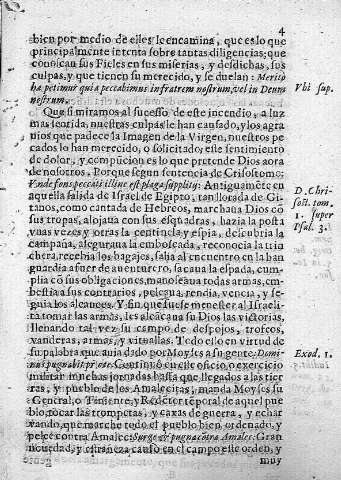 4
bien por medio de elles le encamina, que es lo que
principalmente intenta sobre tantas diligencias; que
conozcan sus Fieles en sus miserias, y desdichas, sus
culpas, y que tienen su merecido, y se duelan: Merito
hæc petimur quia peccabimus in fratrem nostrum, vel in Deum
nostrum.
Vbi sup.
Que si miramos al sucesso de este incendio, a luz
mas le tenida, nuestras culpas le han causado, y los agra
uios que padece la Imagen de la Virgen, nuestros pe-
cados lo han merecido, o solicitado, este sentimiento
de dolor, y compūcion es lo que pretende Dios aora
de nosotros. Porque segun sentencia de Crisostomo:
Vnde fons peccati illinc est plaga supplitij: Antiguamēte en
aquella salida de Israel de Egipto, tan llorada de Gi-
tanos, como cantada de Hebreos, marchaua Dios cō
sus tropas, alojaua con sus esquadras, hazia la posta
vnas vezes y otras la centinela, y espia, descubria la
campaña, asseguraua la emboscada, reconocia la trin
chera, recebia los bagajes, salia al encuentro en la ban
guardia a fuer de auenturero, sacaua la espada, cum-
plia cō sus obligaciones, maneseaua todas armas, em-
bestia a sus contrarios, peleaua, rendia, vencia, y se-
guia los alcances. Y sin que fuesse menester al Israeli-
ta tomar las armas, les alcāçaua su Dios las victorias,
llenando tal vez su campo de despojos, trofeos,
vanderas, armas, y vituallas. Todo ello en virtud de
su palabra que auia dado por Moyses a su gente: Domi-
nus pugnabit pro ese. Continuó en ele oficio, o exercicio
militar muchas jornadas hasta que llegados a las tier
ras, y pueblo de los Amalecitas, manda Moyses su
General, o Tiniente, y Redētor teporal de aquel pue
blo, tocar las trompetas, y caxas de guerra, y echar
vando, que marche todo el pueblo bien ordenado, y
pelee contra Amalec: Surge & pugna cōtra Amalec: Gran
nouedad, y estrañeza causò en el campo este orden, y
muy
D. Chri-
sost. tom.
1. super
Psal. 3.
Exod. 1.